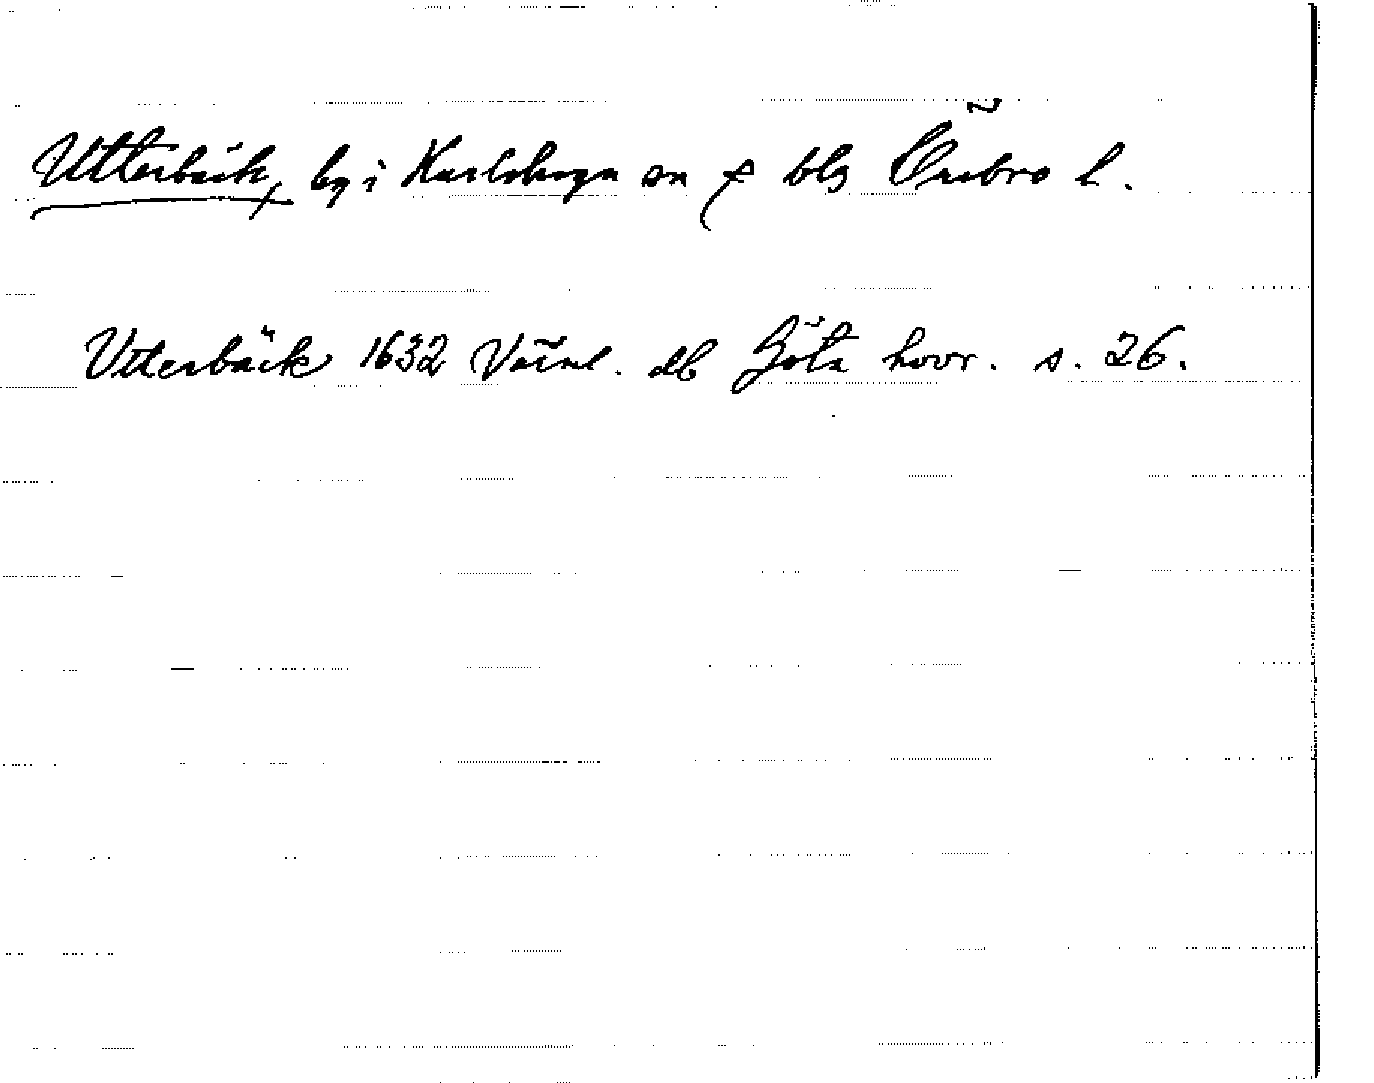 Utterbäck, by i Karlskoga sn o bls Örebro l.
Utterbäck 1632 Värml. db Göta hovr. s. 26.